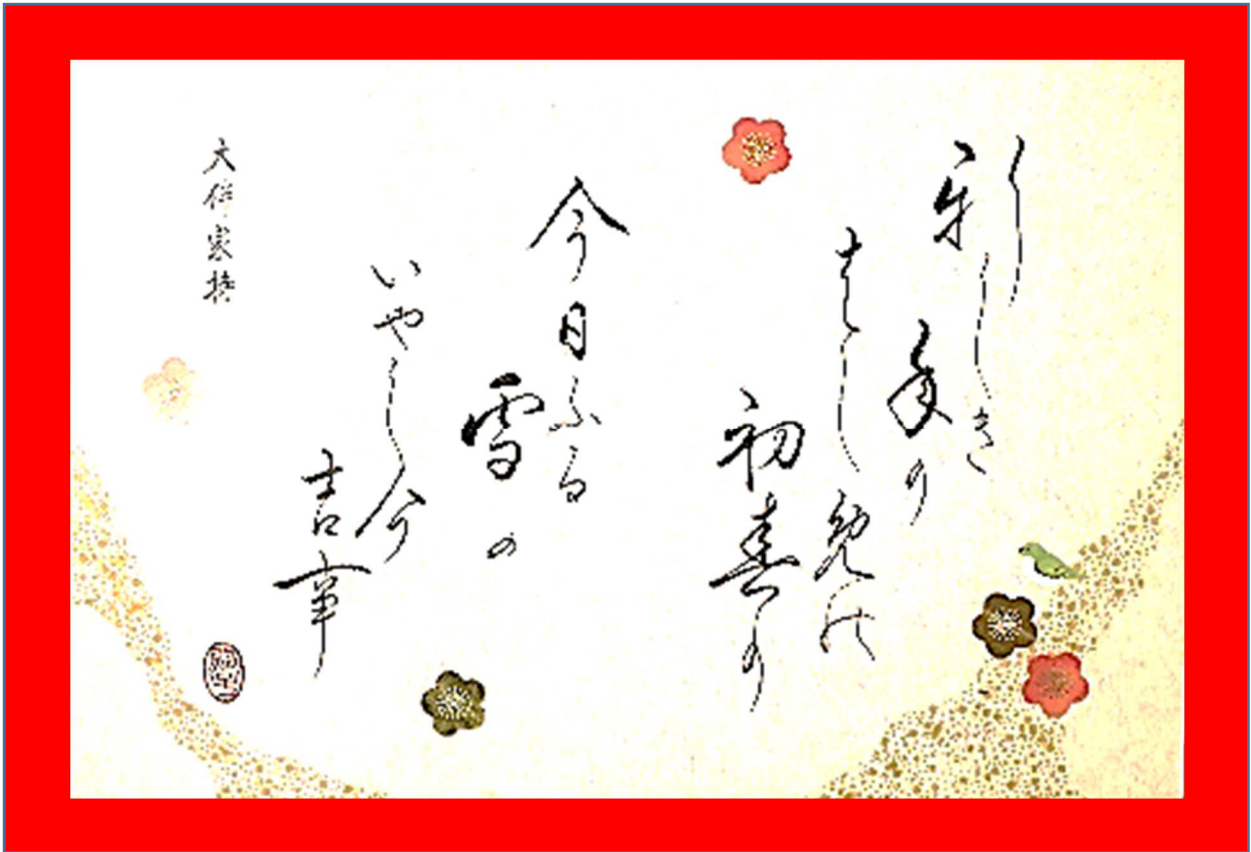 新しき
年の
はしめの
初春の
今日ふる
雪の
いやしけ
吉事
大伴家持